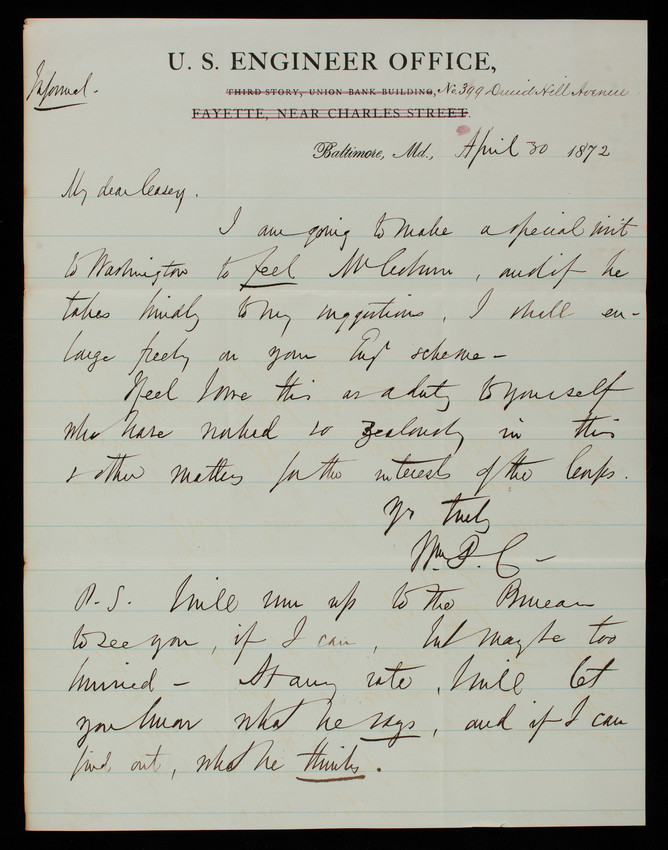 U. S. ENGINEER OFFICE,
Informal -
THIRD STORY, UNION BANK BUILDING, No 399 Druid Hill Avenue
FAYETTE, NEAR CHARLES STREET.
Baltimore, Md., April 30 1872
My dear Casey.
I am going to make a special visit
to Washington to feel , and if he
takes kindly to my suggestions, I shall en-
large freely on your scheme -
I feel I owe this as a duty to yourself
who have worked so zealously in this
& other matters for the interests of the Corps.
Yr truly
Wm P. C -
P.S. I will run up to the Bureau
to see you, if I can, but may be too
hurried - At any rate, I will let
you know what he says, and if I can
find out, what he thinks.